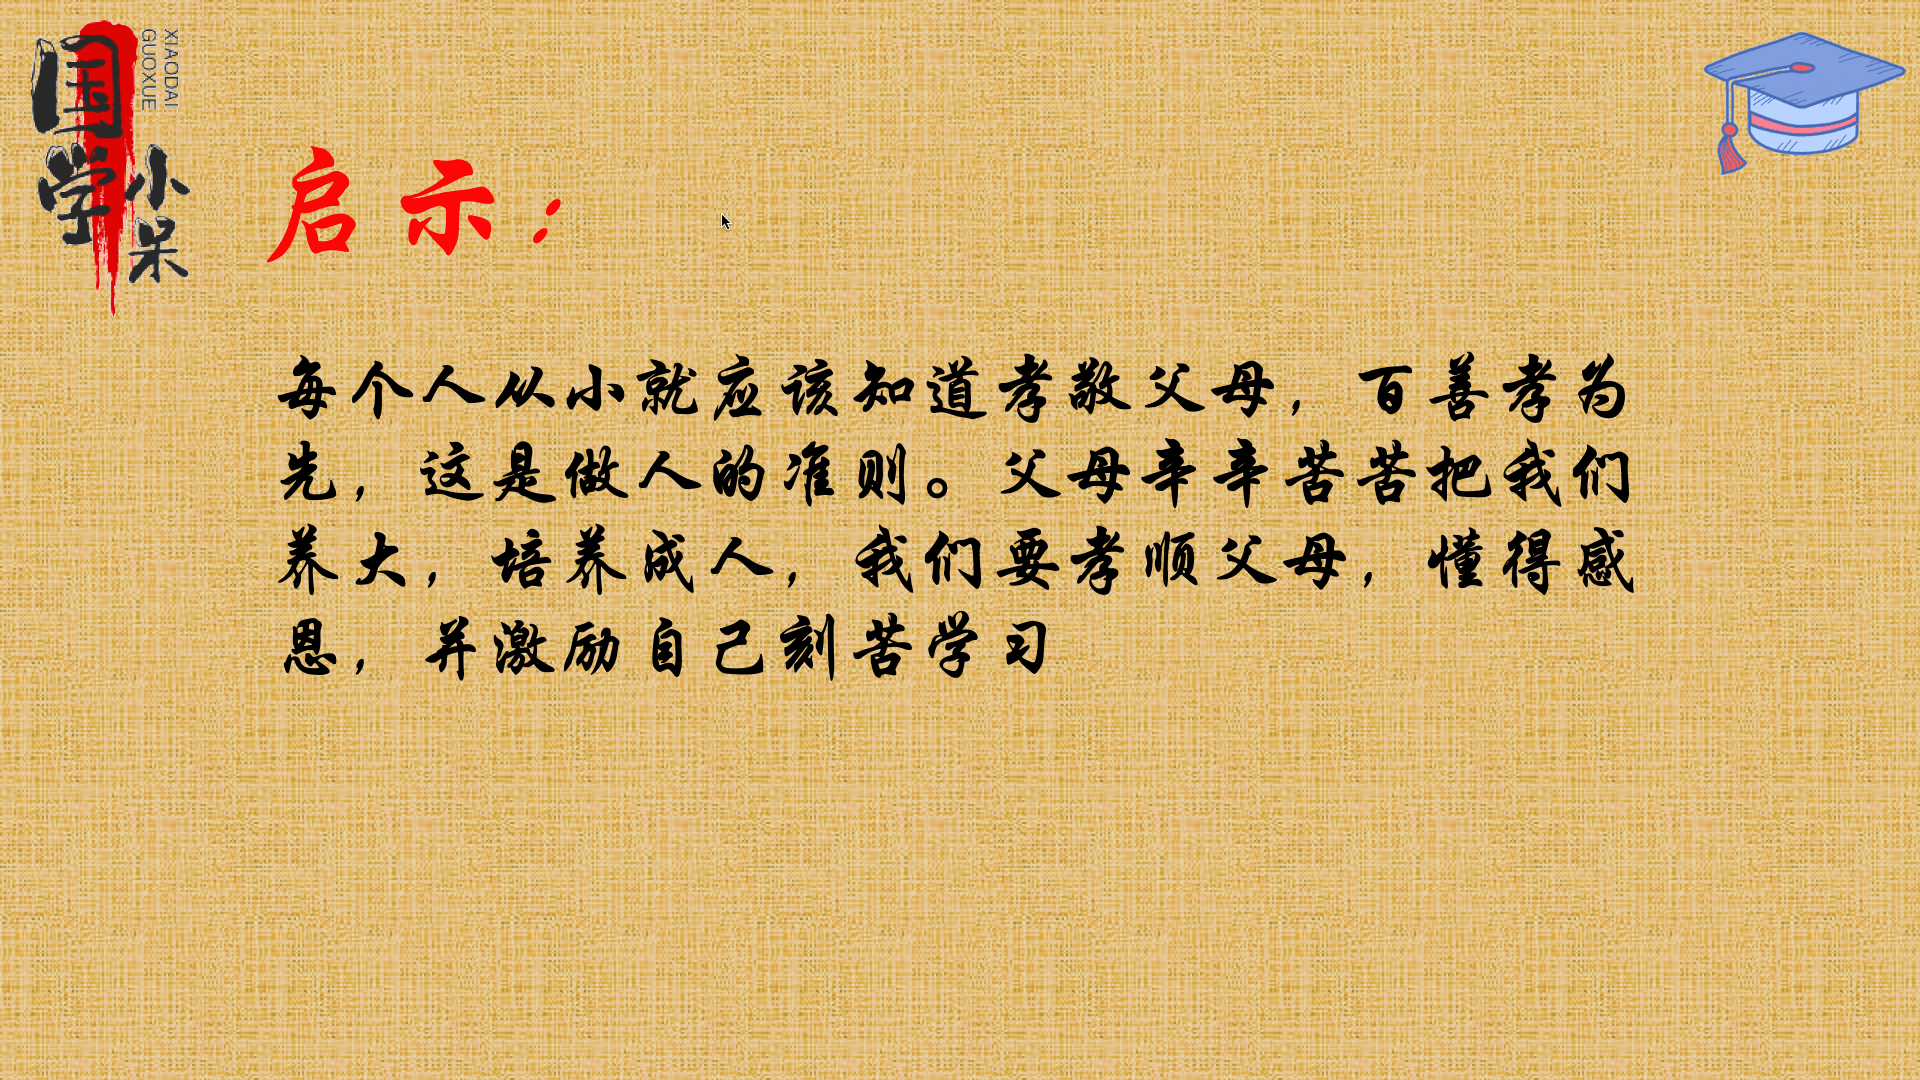 国学
小呆
XIAODAI
GUOXUE
启示：
每个人从小就应该知道孝敬父母，百善孝为
先，这是做人的准则。父母辛辛苦苦把我们
养大，培养成人，我们要孝顺父母，懂得感
恩，并激励自己刻苦学习